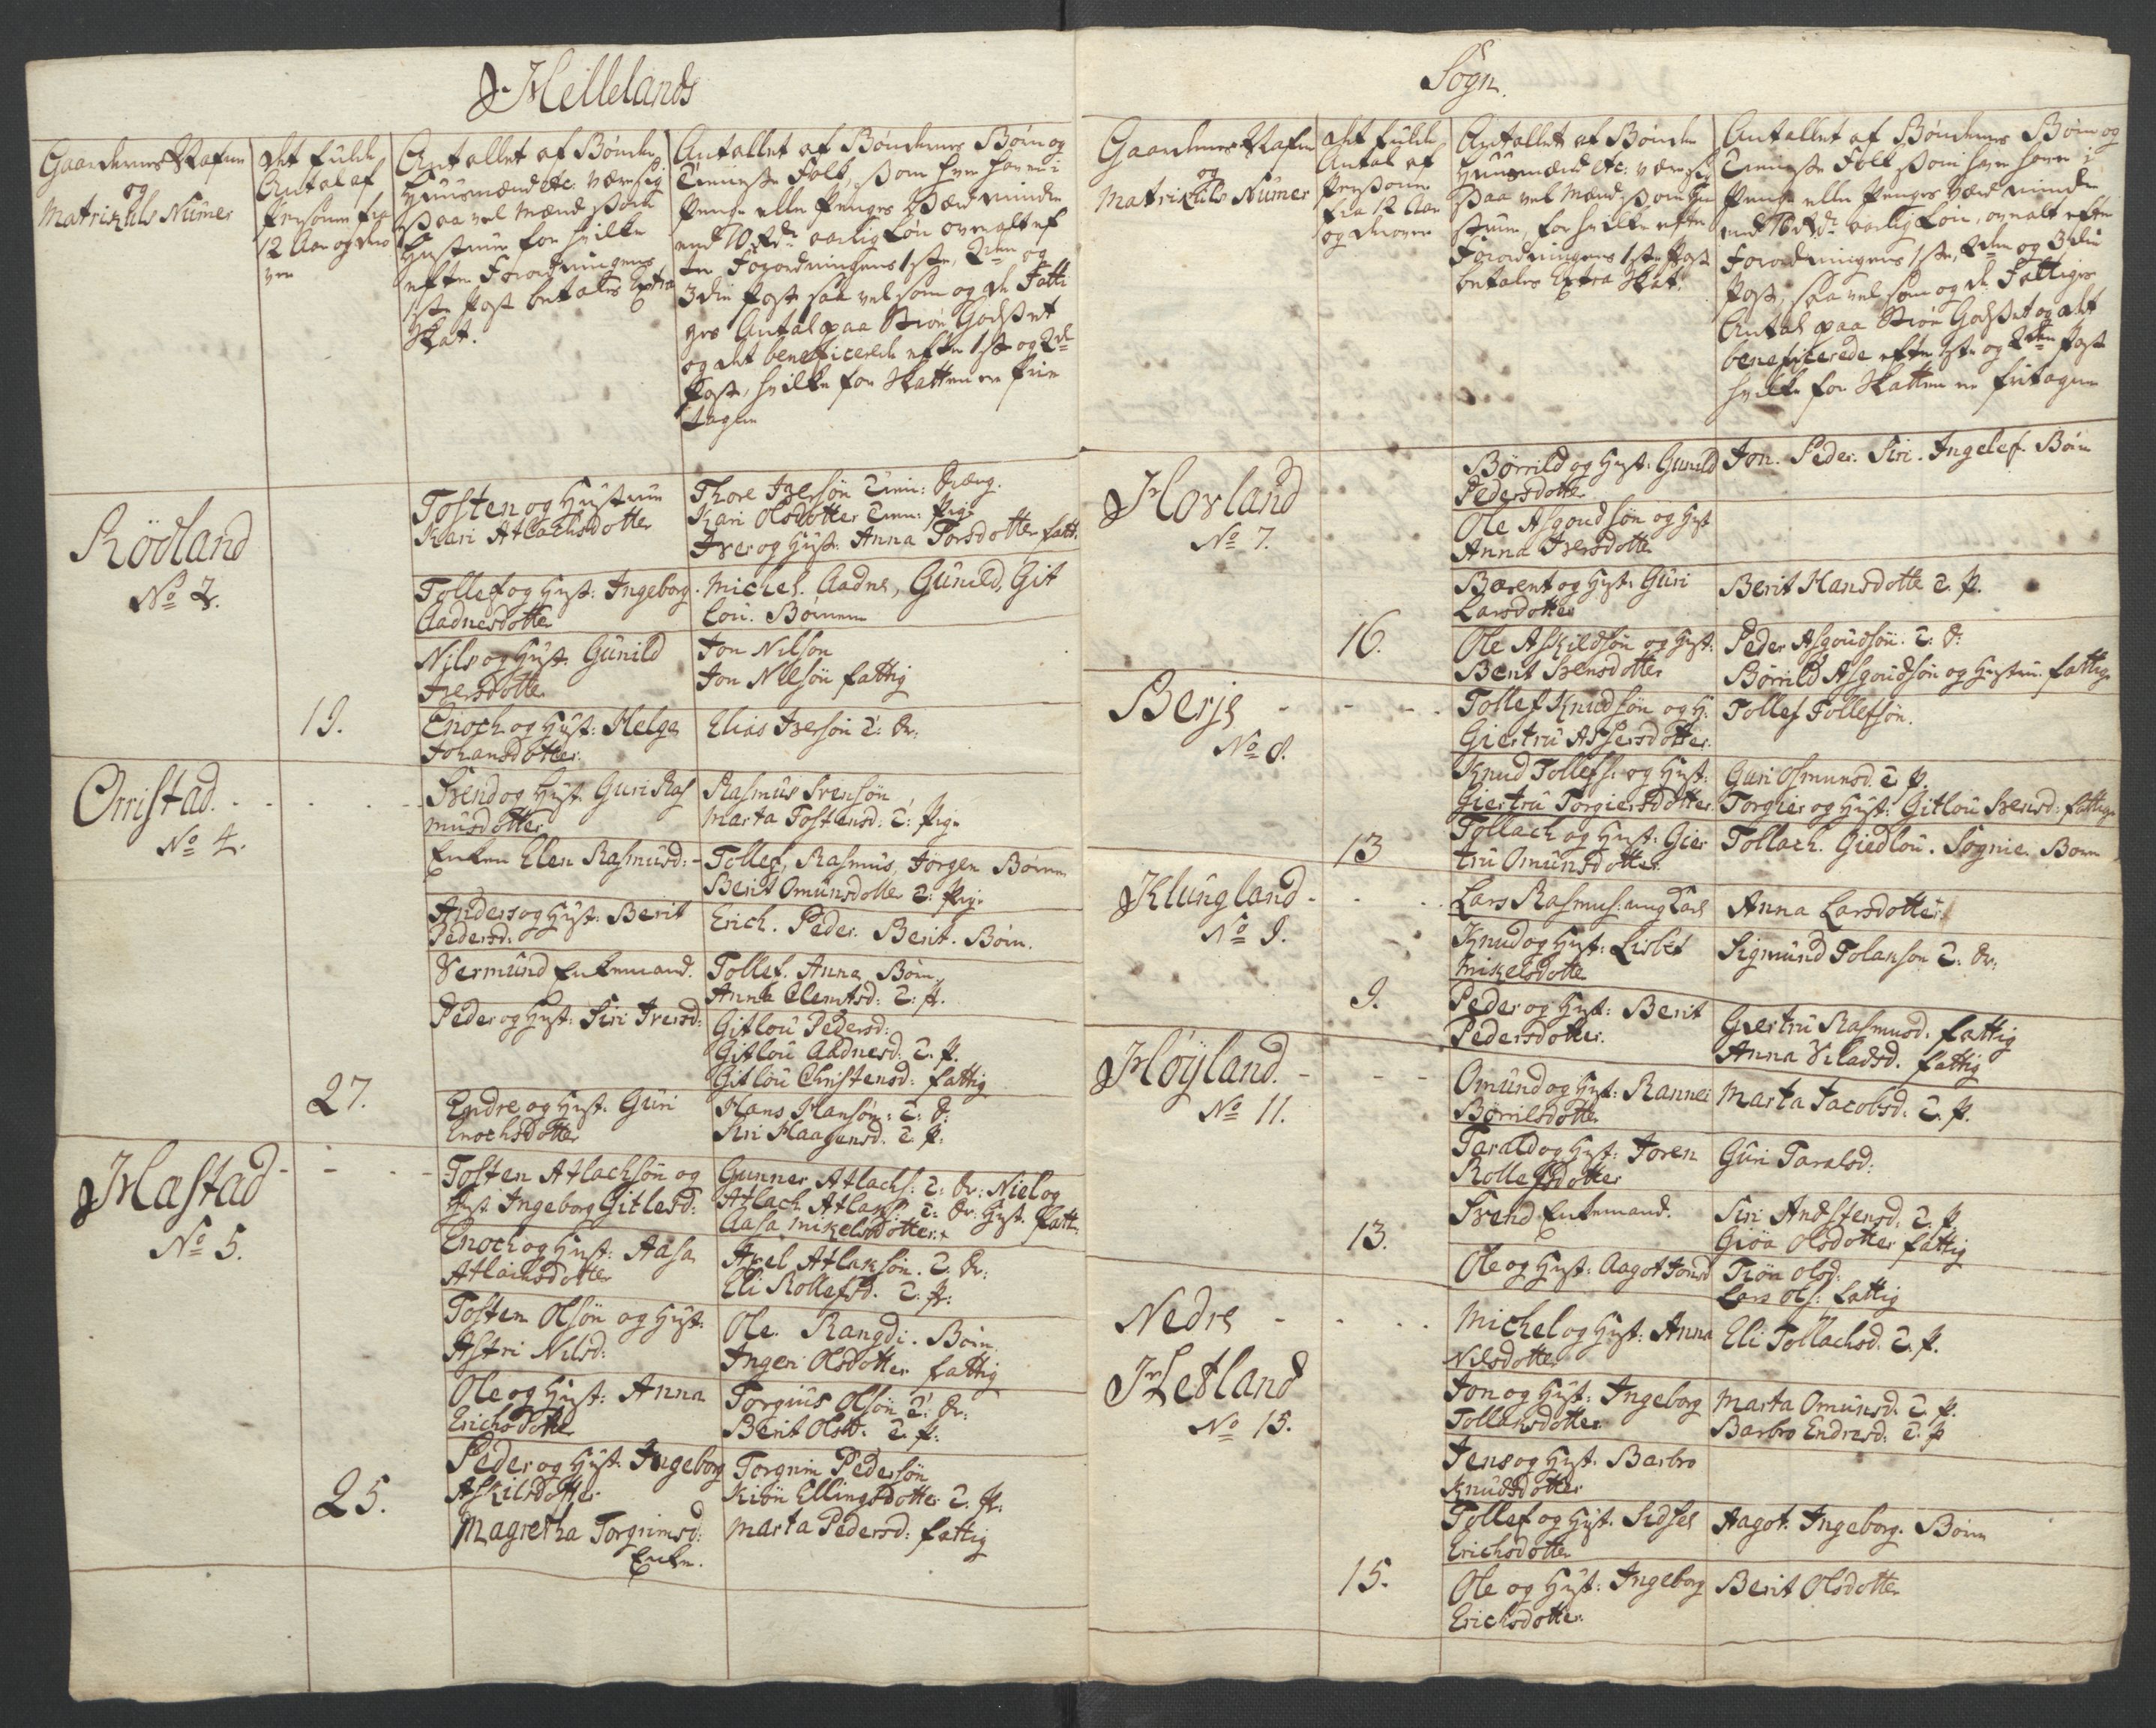 Hellelands
Gaardernes Nafne
og
Matriculs Numer
Det fulde
Antal af
Personer fra
12 Aar og dero
ver
Antallet af Bønder
Huusmænd etc: være sig
saa vel Mænd som
Hustruer for hvilke
efter Forordningens
1ste Post betales Extra
Skat.
Antallet af Bøndernes Børn og
Tieneste Folk, som hver haver i
Penge eller Penges Værd mindre
end 10 Rdr aarlig Løn overalt ef
ter Forordningens 1ste, 2den og
3die Post saa vel som og de Fatti
ges Antal paa Strøe Godset
og det beneficerede efter 1ste og 2den
Post, hvilke for Skatten er frie
tagen
Rödland
No 2.
19.
Tosten og Hustrue
Kari Atlachsdotter
Thore Iversön Tien: Dreng.
Kari Olsdotter Tien: Pige
Iver og Hust: Anna Torsdotter fatt.
Tollef og Hust: Ingeborg
Aadnesdotter
Michel. Aadne, Gunild, Git
lou. Børnene
Nils og Hust. Gunild
Iversdotter
Jon Nilsön
Jon Nilsön fattig
Enoch og Hust: Helge
Johansdotter.
Elias Iversön T: Dr:
Orristad.
No 4.
27.
Svend og Hust. Guri Ras
musdotter
Rasmus Svensön
Marta Tostensd: T: Pige
Enken Elen Rasmusd:
Tollef, Rasmus, Jorgen Börnene
Berit Omunsdotter T: Pige
Anders og Hust: Berit
Pedersd:
Erich. Peder. Berit. Börn.
Vermund Enkemand.
Tollef. Anna. Börn
Anna Clemtsd: T: P.
Peder og Hust: Siri Iversd:
Gitlou Pedersd:
Gitlou Aadnesd: T. P.
Gitlou Christensd: fattig
Endre og Hust. Guri
Enochsdotter
Hans Hansön: T: D:
Siri Haagensd. T. P:
Hæstad
No 5.
25.
Tosten Atlachsön og
Hust Ingeborg Gitlesd:
Gunner Atlachs: T: Dr: Niel og
Atlach Atlaks: T: Dr: Hust. fatt:
Aasa Mikelsdotter
Enoch og Hust: Aasa
Atlachsdotter
Axel Atlaksön. T. Dr:
Eli Rollefsd. T. P:
Tosten Olsön og Hust:
Astri Nilsd:
Ole. Rangdi. Börn
Ingeri Olsdotter fattig
Ole og Hust: Anna
Erichsdotter
Torgius Olsön T: Dr:
Berit Olsd: T. P:
Peder og Hust. Ingeborg
Askilsdotter
Torgrim Pedersön
Kiön Ellingsdotter T. P:
Magretha Torgrimsd:
Enke.
Marta Pedersd: fattig
Sogn.
Gaardenes Nafn
og
Matriculs Numer
Det fulde
Antal af
Persone
fra 12 Aar
og derover
Antallet af Bønder
Huusmænd etc: være sig
saa vel Mænd som Hu
struer, for hvilke efter
Forordningens 1ste Post
betales Extra Skat.
Antallet af Bøndernes Børn og
Tieneste Folk som hver haver i
Penge eller Penges Værd mindre
end 10 Rdr aarlig Løn, overalt efter
Forordningens 1ste, 2den og 3die
Post, saa vel som og de Fattiges
Antal paa Strøe Godset og det
beneficerede efter 1ste og 2den Post
hvilke for Skatten er fritagne
Hovland
No 7.
16.
Börrild og Hust: Gunild
Pedersdotter
Jon. Peder. Siri. Ingelef. Börn
Ole Asgoudsön og Hust
Anna Iversdotter
Bærent og Hust: Guri
Larsdotter
Berit Hansdotter T. P.
Ole Askildsön og Hust:
Berit Svensdotter
Peder Asgoudsön. T. D:
Börrild Asgoudsön og Hustru. fattige
Berje
No 8.
13
Tollef Knudsön og H.
Giertru Assersdotter.
Tollef Tollefsön.
Knud Tollefs: og Hust:
Giertru Torgiersdotter
Guri Osmunsd. T P.
Torgier og Hust: Gitlou Svensd: fattige
Tollach og Hust: Gier
tru Omunsdotter
Tollach. Giedlou. Sognie. Born
Klungland
No 9.
9.
Lars Rasmus: ung Karl
Anna Larsdotter
Knud og Hust: Lisbet
Mikelsdotter
Sigmund Tolanson T: Dr:
Peder og Hust: Berit
Pedersdotter.
Giertru Rasmusd. fattig
Anna Viladsd. fattig
Høÿland.
No 11.
13.
Omund og Hust: Rannei
Börrilsdotter
Marta Jacobsd: T. P.
Tarald og Hust: Joren
Rollefsdotter
Guri Taralsd:
Svend Enkemand.
Siri Andstensd: T. P.
Giöa Olsdotter fattig
Ole og Hust: Aagot Jonsd
Tiön Olsd:
Lars Ols: fattig
Nedre
Hetland
No 15.
15.
Michel og Hust: Anna
Nilsdotter
Eli Tollachsd. T. P.
Jon og Hust: Ingeborg
Tollaksdotter
Marta Omunsd. T. P.
Barbro Endresd: T. P
Jens og Hust. Barbro
Knudsdotter
Tollef og Hust. Sidsel
Erichsdotter
Aagot. Ingeborg. Börn
Ole og Hust: Ingeborg
Erichsdotter.
Berit Olsdotter